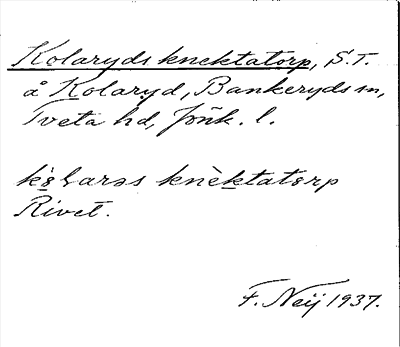 Kolaryds knektatorp, S.T.
å Kolaryd, Bankeryds sn,
Tveta hd, Jönk. l.
kɷ̀laras knèktatɷrp
Rivet.
F. Neij 1937.